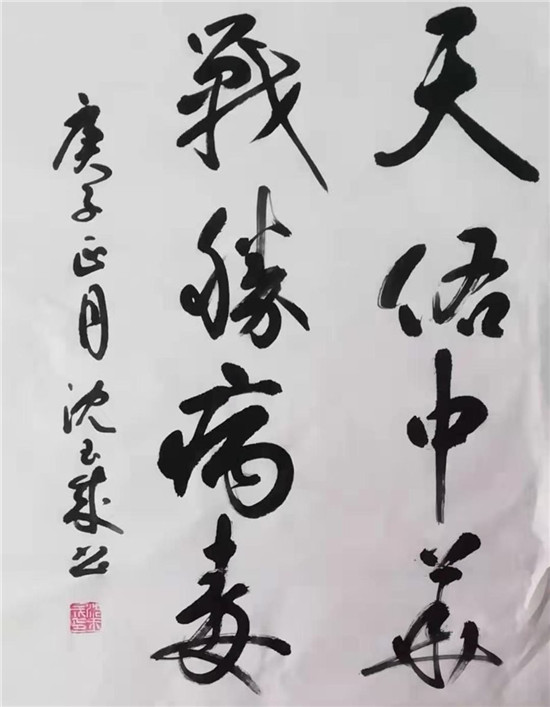 天佑中華
戰勝病毒
庚子正月 沈玉成书